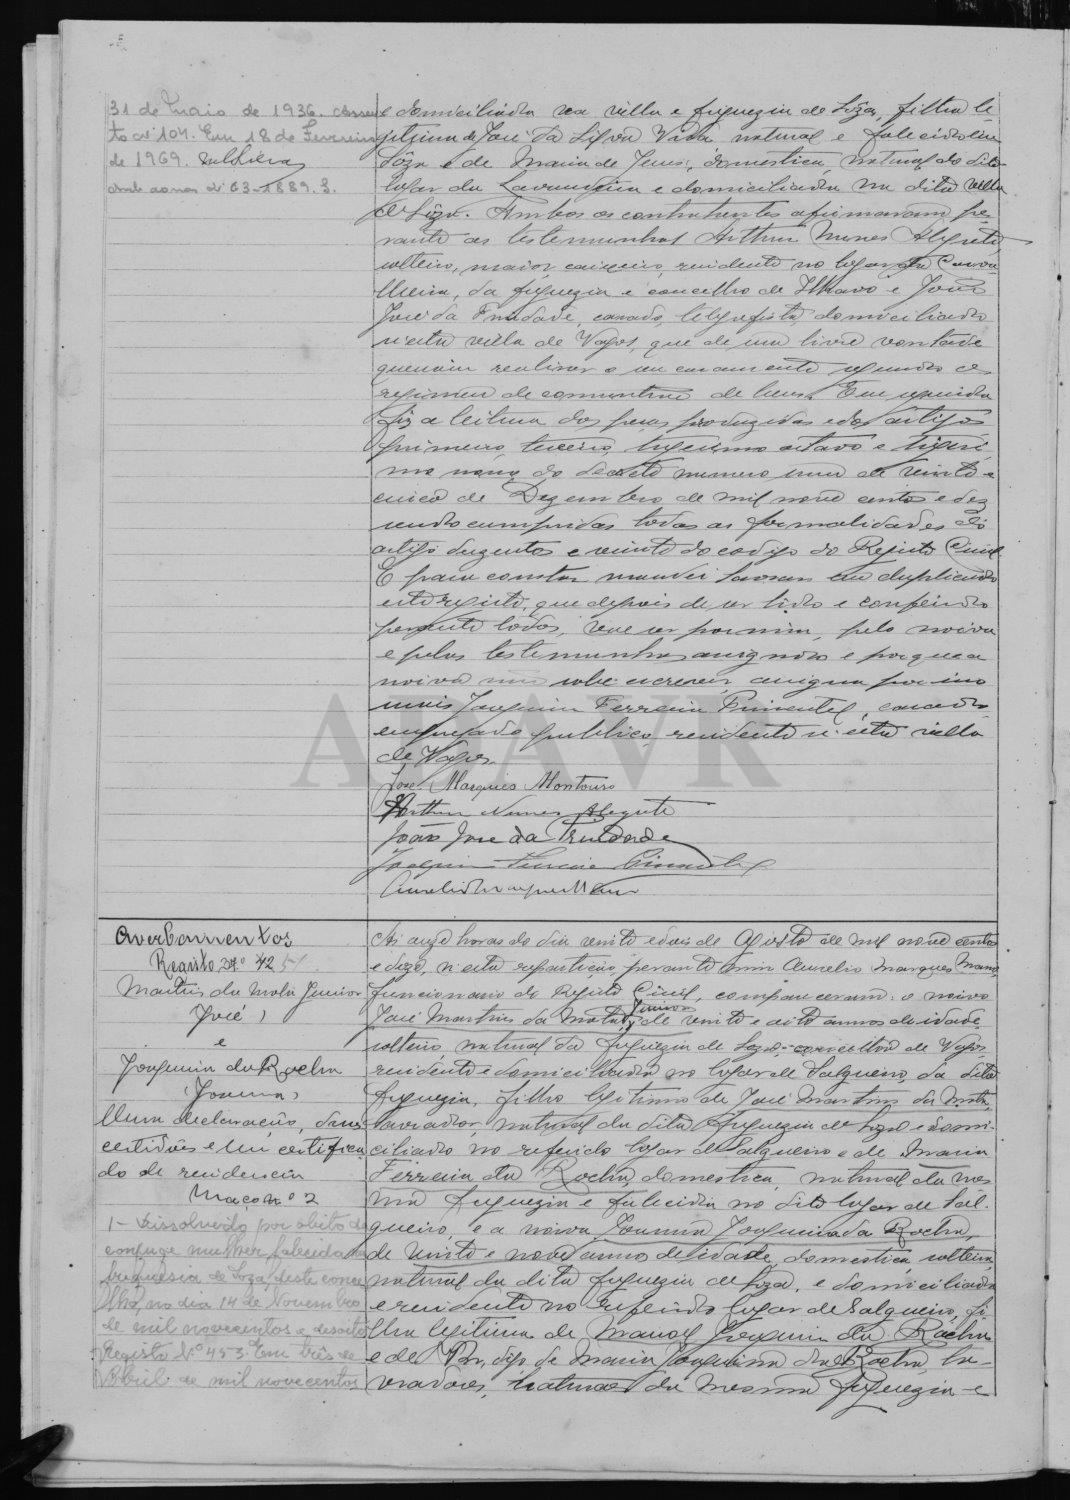 31 de Maio de 1936. Assen-
to nº 104. Em 18 de Fevereiro
de 1969.
e domiciliada na villa e freguezia de Sôza, filha le-
gitima de José da Silva natural e falecido em
Sôza e de Maria de Jesus, domestica, natural do dito
logar da Lavandeira e domiciliada na dita villa
de Sôza. Ambos os contrahentes afirmaram pe-
rante as testemunhas Arthur Nunes Alegrete,
solteiro, maior, caixeiro, residente no logar da
da freguezia e concelho de Ilhavo e João
José da Trindade, casado, telegrafista, domiciliado
n'esta villa de Vagos, que de sua livre vontade
queriam realisar o seu casamento segundo o
regimen de comunhão de bens. Em seguida
fiz a leitura das peças produzidas e dos artigos
primeiro, terceiro, trigesimo oitavo e trigesi-
mo nono do decreto numero um de vinte e
cinco de Dezembro de mil nove centos e dez
sendo cumpridas todas as formalidades do
artigo duzentos e vinte do codigo do Registo Civil.
E para constar mandei lavrar em duplicado
este registo, que depois de ser lido e conferido
perante todos, vae ser por mim, pelo noivo
e pelas testemunhas assignado e porque a
noiva não sabe escrever, assigna por ella
mais Joaquim Ferreira Pimentel, casado,
empregado publico, residente n'esta villa
de Vagos.
José Marques Montouro
Arthur Nunes Alegrete
João José da Trindade
Joaquim Ferreira Pimentel
Aurelio Marques Mano
Averbamentos
Registo Nº 42
Martins da Mota Junior
(José)
e
Joaquina da Rocha
(Joanna)
Uma declaração, duas
certidões e um certifica-
do de residencia
Maço nº 2
1 - Dissolvido por obito do
conjuge mulher, falecida na
freguesia de Soza, deste conce-
lho, no dia 14 de Novembro
de mil novecentos e desoito
Registo Nº 453. Em três de
Abril de mil novecentos
Ás onze horas do dia vinte e dois de Agosto de mil nove centos
e doze, n'esta repartição, perante mim Aurelio Marques Mano,
funcionario do Registo Civil, compareceram: o noivo
José Martins da Mota Junior, de vinte e oito annos de idade,
solteiro, natural da freguezia de Soza, concelho de Vagos,
residente e domiciliado no logar de Salgueiro, da dita
freguezia, filho legitimo de José Martins da Mota,
lavrador, natural da dita freguezia de Soza e domi-
ciliado no referido logar de Salgueiro e de Maria
Ferreira da Rocha, domestica, natural da mes-
ma freguezia e falecida no dito logar de Sal-
gueiro, e a noiva Joanna Joaquina da Rocha,
de vinte e nove annos de idade, domestica, solteira,
natural da dita freguezia de Soza, e domiciliada
e residente no referido logar de Salgueiro, fi-
lha legitima de Manoel Joaquim da Rocha
e de Ro, digo de Maria Joaquina da Rocha, la-
vradores, naturaes da mesma freguezia e
ADAVR